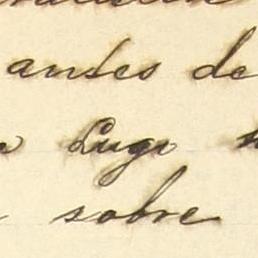 antes de
Lugo
sobre